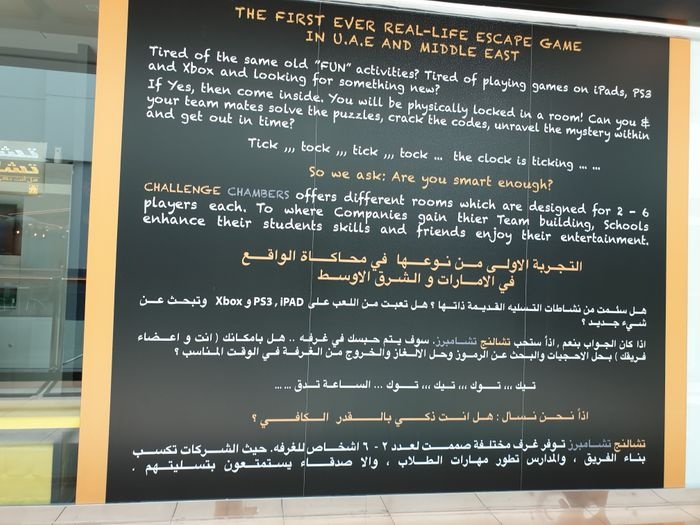 THE FIRST EVER REAL-LIFE ESCAPE GAME
IN U.A.E AND MIDDLE EAST
Tired of the same old "FUN" activities? Tired of playing games on iPads, PS3
and Xbox and looking for something new?
If Yes, then come inside. You will be physically locked in a room! Can you &
your team mates solve the puzzles, crack the codes, unravel the mystery within
and get out in time?
Tick ,,, tock ,,, tick ,,, tock ... the clock is ticking ... ...
So we ask: Are you smart enough?
CHALLENGE CHAMBERS offers different rooms which are designed for 2 - 6
players each. To where Companies gain thier Team building, Schools
enhance their students skills and friends enjoy their entertainment.
التجربة الاولى من نوعها في محاكاة الواقع
في الامارات و الشرق الاوسط
هل سئمت من نشاطات التسليه القديمة ذاتها ؟ هل تعبت من اللعب على PS3 , iPAD و Xbox وتبحث عن
شيء جديد ؟
اذا كان الجواب بنعم , اذاً ستحب تشالنج تشامبرز. سوف يتم حبسك في غرفه .. هل بامكانك ( انت و اعضاء
فريقك ) بحل الاحجيات والبحث عن الرموز وحل الالغاز والخروج من الغرفة في الوقت المناسب ؟
تيك ,,, توك ,,, تيك ,,, توك ... الساعة تدق ... ...
اذاً نحن نسال : هل انت ذكي بالقدر الكافي ؟
تشالنج تشامبرز توفر غرف مختلفة صممت لعدد ٢ - ٦ اشخاص للغرفه. حيث الشركات تكسب
بناء الفريق , والمدارس تطور مهارات الطلاب , والا صدقاء يستمتعون بتسليتهم .